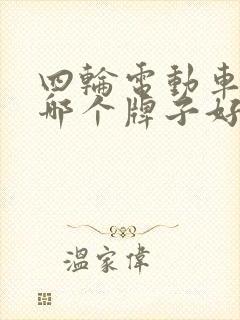 四輪電動車
哪个牌子好
溫家偉